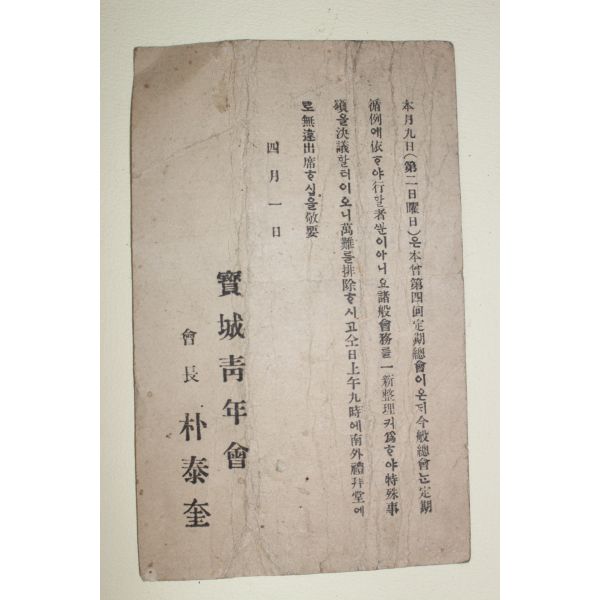 本月九日(第二日曜日)은本會第四回定期總會이온뒤今般總會는定期
循例에依ᄒᆞ야行ᄒᆞᆯ者ᄲᅮᆫ이아니오諸般會務를一新整理키爲ᄒᆞ야特殊事
項을決議ᄒᆞᆯ터이오니萬難를排除ᄒᆞ시고仝日上午九時에南外禮拜堂에
로無違出席ᄒᆞ심을敬要
四月一日
寶城靑年會
會長 朴泰奎